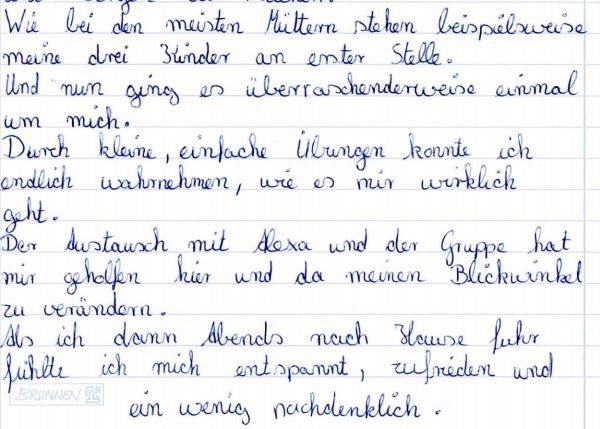 Wie bei den meisten Müttern stehen beispielsweise
meine drei Kinder an erster Stelle.
Und nun ging es überraschenderweise einmal
um mich.
Durch kleine, einfache Übungen konnte ich
endlich wahrnehmen, wie es mir wirklich
geht.
Der Austausch mit Alexa und der Gruppe hat
mir geholfen hier und da meinen Blickwinkel
zu verändern.
Als ich dann Abends nach Hause fuhr
fühlte ich mich entspannt, zufrieden und
BRUNNEN
ein wenig nachdenklich.